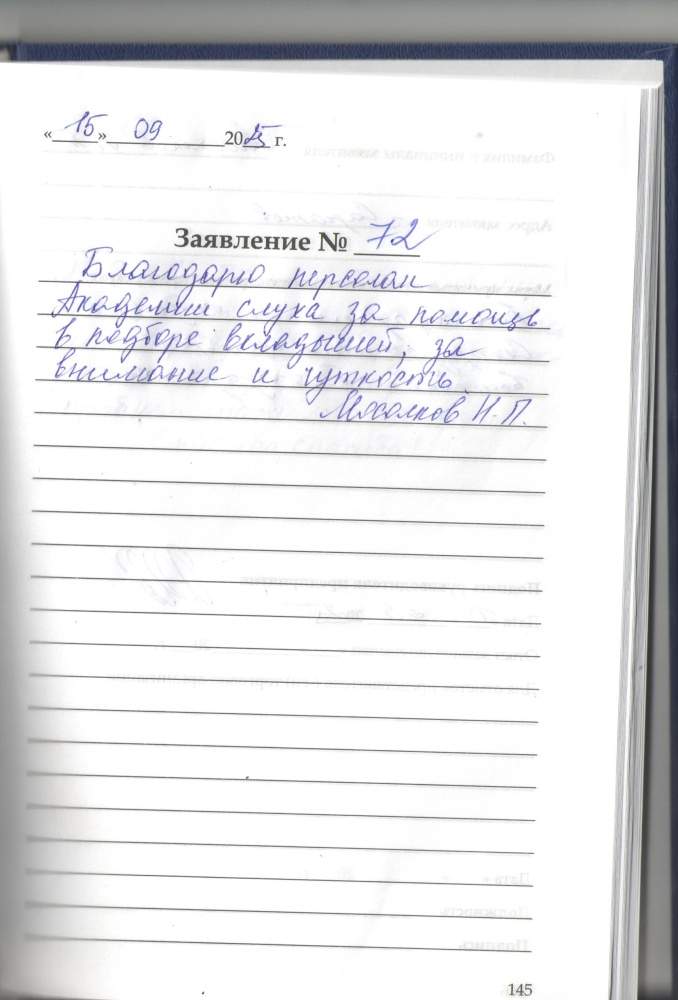 «15» 09 2025 г.
Заявление № 72
Благодарю персолан
Академии слуха за помощь
в подборе вкладышей, за
внимание и чуткость.
Мосолков Н.П.
145